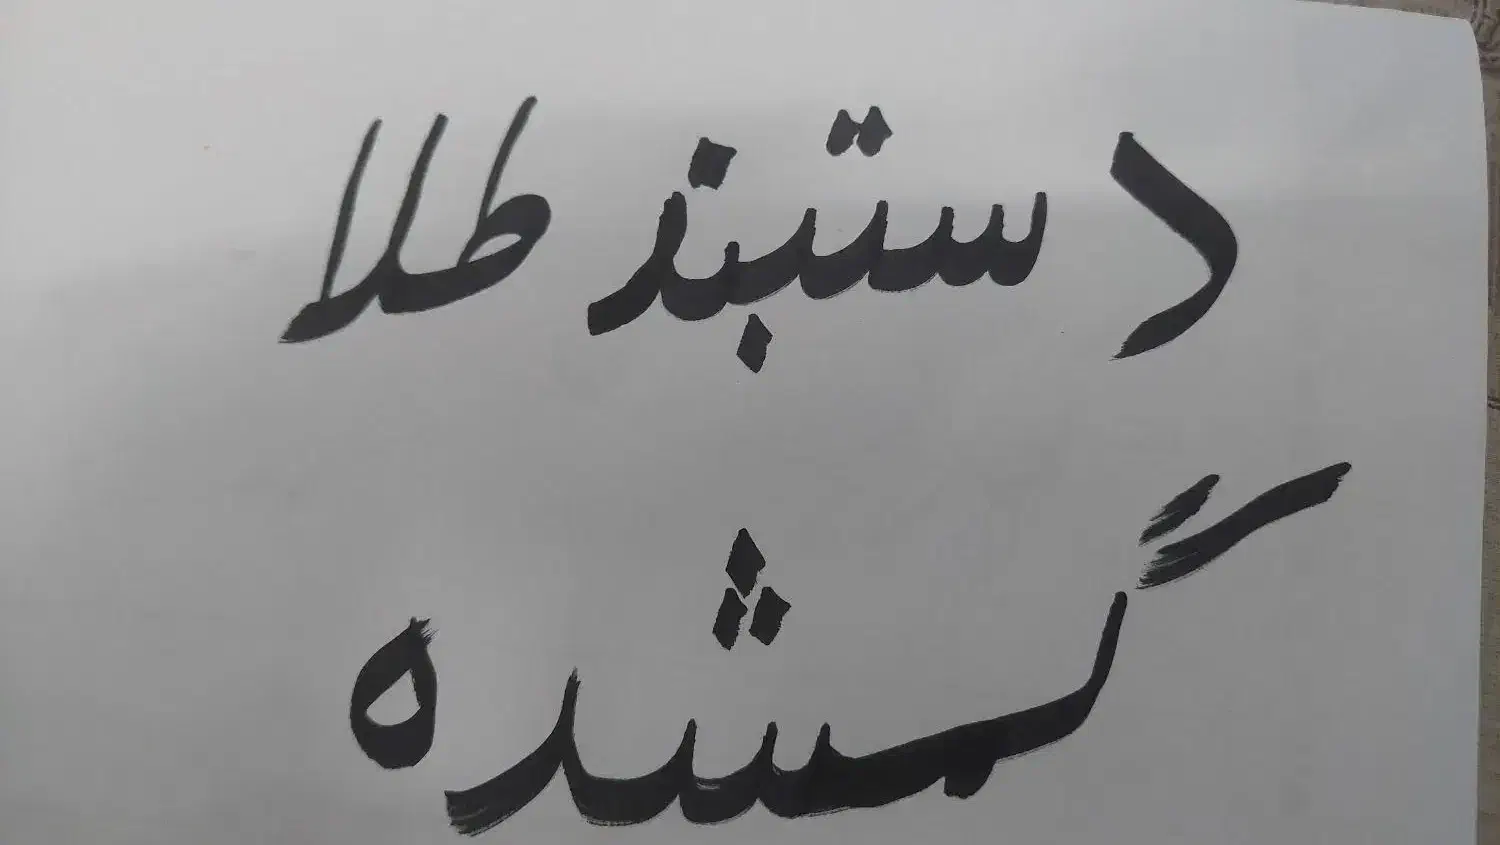 دستبند طلا
گمشده